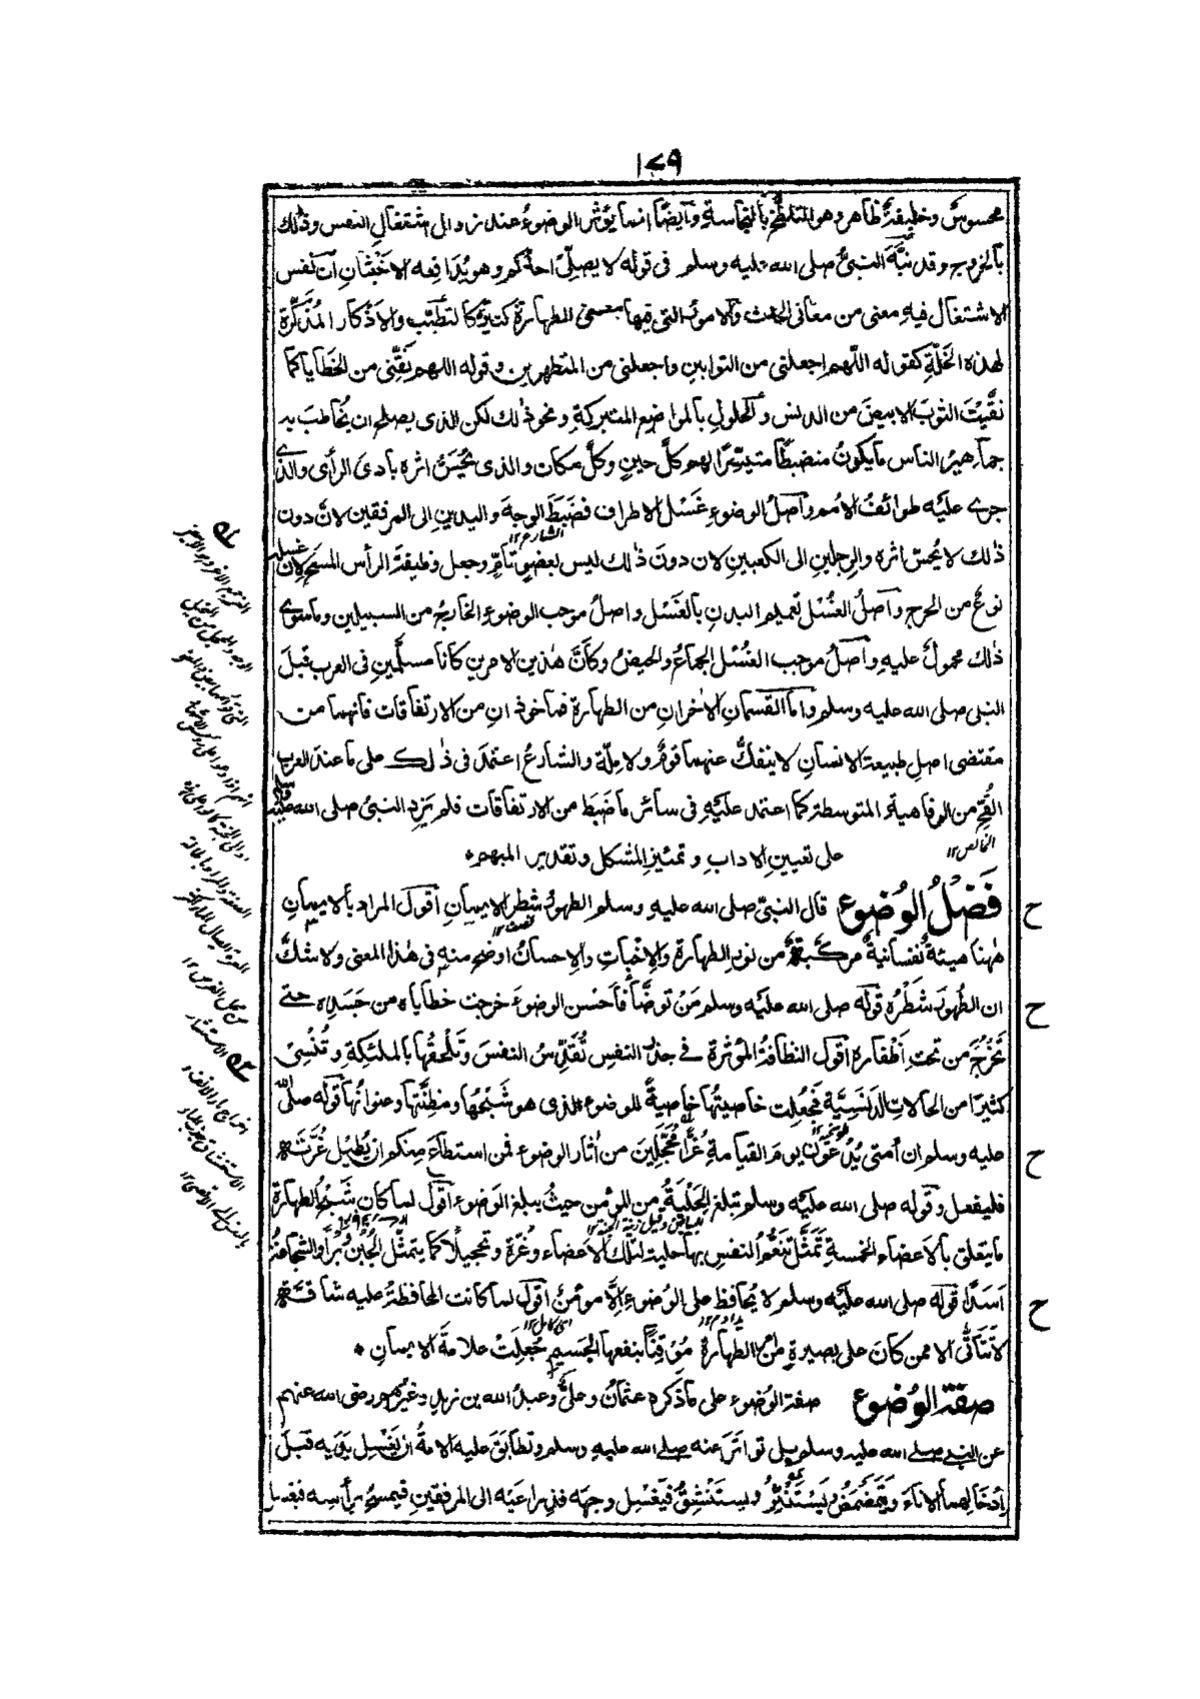 ١٧٩
محسوسٌ وخليفةٌ ظاهر وهو التلطخ بالنجاسة وأيضًا إنما يؤثر الوضوءُ عند زوال اشتغالِ النفس وذلك
بالخروج وقد نبَّهَ النبيُّ صلى الله عليه وسلم فى قوله لا يصلِّى احدُكم وهو يُدَافعه الاخبثانِ ان نفس
الاشتغال فيهِ معنى من معانى الحدث والامورُ التى فيها معنى الطهارة كثيرةٌ كالتطيّب والاَذكار المُذَكِّرة
لهذه الخَلّةِ كقوله اللّهم اجعلنى من التوابين واجعلنى من المتطهرين وقوله اللهم نَقِّنى من الخطايا كما
نقَّيْتَ الثوبَ الابيضَ من الدنس والحلولِ بالمواضع المتبركةِ ونحو ذلك لكن الذى يصلح ان يُخاطَبَ به
جماهيرُ الناس ما يكونُ منضبطًا متيسِّرًا لهم كلَّ حينٍ وكلَّ مكان والذى يُحَسُّ اثره بادىَ الرأى والذى
جرى عليه طوائفُ الأمم واصلُ الوضوءِ غَسْل الاطراف فضَبَطَ الوجهَ واليدينِ الى المرفقين لانّ دون
الشارع ١٢
ذلك لا يُحَسّ اثره والرجلينِ الى الكعبينِ لان دونَ ذلك ليس بعضوٍ تامٍّ وجعل وظيفةَ الرأس المسحَ لان غسله
نوعٌ من الحرج واصلُ الغُسْل تعميم البدنِ بالغَسْل واصلُ موجب الوضوءِ الخارجُ من السبيلين وما سوى
ذلك محمولٌ عليهِ واصلُ موجب الغُسْل الجماعُ والحيضُ وكأنَّ هذين الامرينِ كانا مسلَّمينِ فى العرب قبلَ
النبى صلى الله عليه وسلم واما القسمانِ الاخرانِ من الطهارة فماخوذانِ من الارتفاقات فانهما من
مقتضى اصلِ طبيعة الانسانِ لا ينفكُّ عنهما قومٌ ولا ملةٌ والشارعُ اعتمدَ فى ذلك على ما عندَ العرب
القُحِّ من الرفاهيةِ المتوسطة كما اعتمد عليهِ فى سائر ما ضبَط من الارتفاقات فلم يَزِد النبىُّ صلى الله عليه وسلم
الخالص ١٢
على تعيينِ الاداب وتمييزِ المشكل وتقديرِ المبهم٭
ح
فَضْلُ الوُضُوءِ قال النبىُّ صلى الله عليه وسلم الطهور شطر الايمانِ أقول المراد بالايمانِ
ههنا هيئةٌ نفسانيةٌ مركبةٌ من نور الطهارة والإخبات والاحسانُ اوضح منه فى هذا المعنى ولا شكَّ
ح
ان الطُهورَ شَطْرُه قوله صلى الله عليه وسلم مَنْ توضَّأَ فاَحْسن الوضوءَ خرجت خطاياه من جَسَدِه حتى
تَخْرُجَ من تحتِ اَظْفاره اقول النظافةُ المؤثرة فى جذرِ النفسِ تُقَدِّسُ النفسَ وتُلْحِقُها بالملئكةِ وتُنْسِى
كثيرًا من الحالاتِ الدَنَسِيَّة فجُعِلت خاصيتُها خاصيةً للوضوء الذى هو شَبْحُها ومظنَّتها وعنوانُها قوله صلى الله
ح
عليه وسلم ان أمتى يُدْعَوْنَ يومَ القيامةِ غُرًّا مُحَجَّلينَ من اٰثار الوضوءِ فمن استطاعَ منكم ان يُطيل غُرَّتَه
فليفعل وقوله صلى الله عليه وسلم تبلغ الحِلْيَةُ من المؤمن حيثُ يبلغ الوَضوءُ اقول لما كان شَبْحُ الطهارة
ما يتعلق بالاعضاءِ الخمسة تَمَثَّلَ تنعُّمُ النفسِ بها حليةً لتلك الاعضاء وغُرةً وتحجيلًا كما يتمثّل الجُبْنُ وَبْرًا والشجاعةُ
ح
اَسَدًا قوله صلى الله عليه وسلم لا يُحافظ على الوُضوءِ اِلَّا مؤمنٌ اقول لما كانت المحافظةُ عليه شاقّةً
يداوم ١٢
اى كامل ١٢
لا تتأتّٰى الا ممن كانَ على بصيرةٍ من امر الطهارة مُوْقِنًا بنفعها الجَسيم جُعِلَتْ علامةَ الايمانِ ٭
صفة الوُضوء صفة الوُضوءِ على ما ذكره عثمانُ وعلىٌّ وعبدُ الله بن زيدٍ وغيرُهم رضى الله عنهم
عن النبى صلى الله عليه وسلم بل تواتَرَ عنه صلى الله عليه وسلم وتطابَقَ عليه الامةُ ان يَغْسِل يَدَيه قبلَ
اِدخالِهما الاناءَ ويتمضمضَ ويَستَنثِرَ ويستَنْشِقَ فيَغْسِل وجهَه فذراعَيْه الى المرفقينِ فيمسحُ برأسه فيغسل